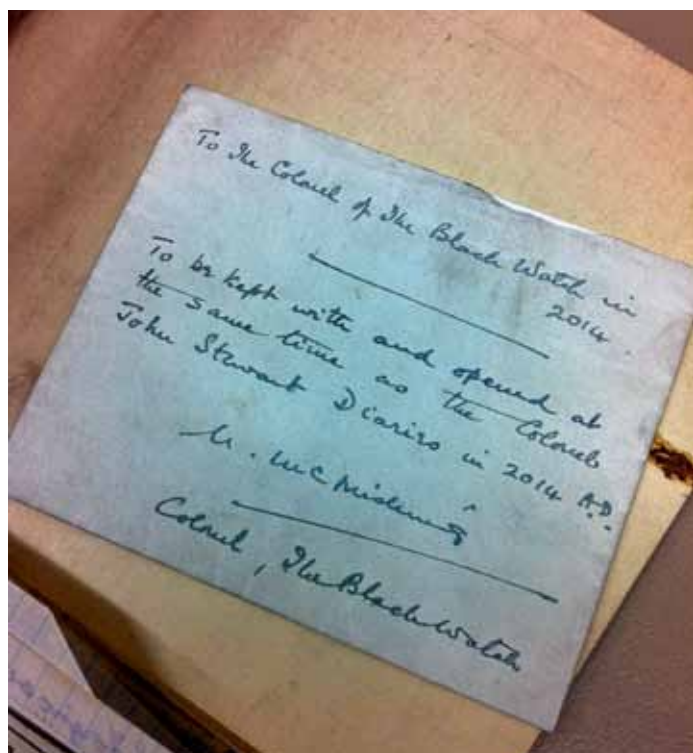 To The Colonel of The Black Watch in
2014.
To be kept with and opened at
the same time as the Colonel
John Stewart Diaries in 2014 A.D.
Colonel, The Black Watch